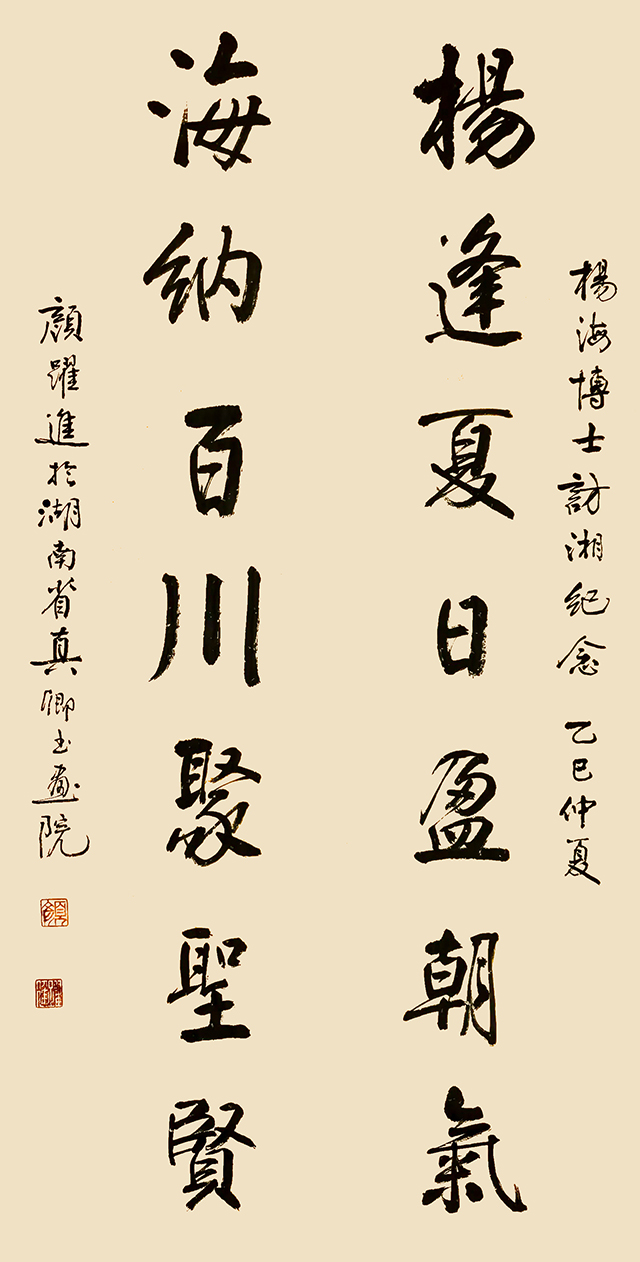 楊海博士訪湘纪念 乙巳仲夏
楊逢夏日盈朝氣
海纳百川聚聖賢
顏躍進於湖南省真卿书畫院